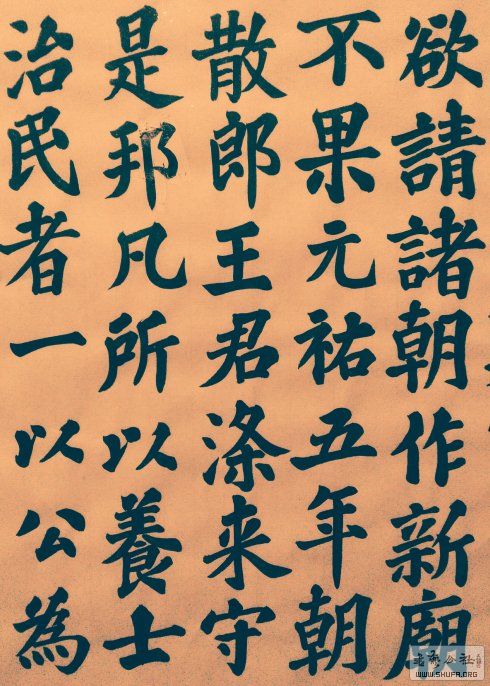 欲請諸朝作新廟
不果元祐五年朝
散郎王君涤来守
是邦凡所以養士
治民者一以公為
WWW.SHUFA.ORG